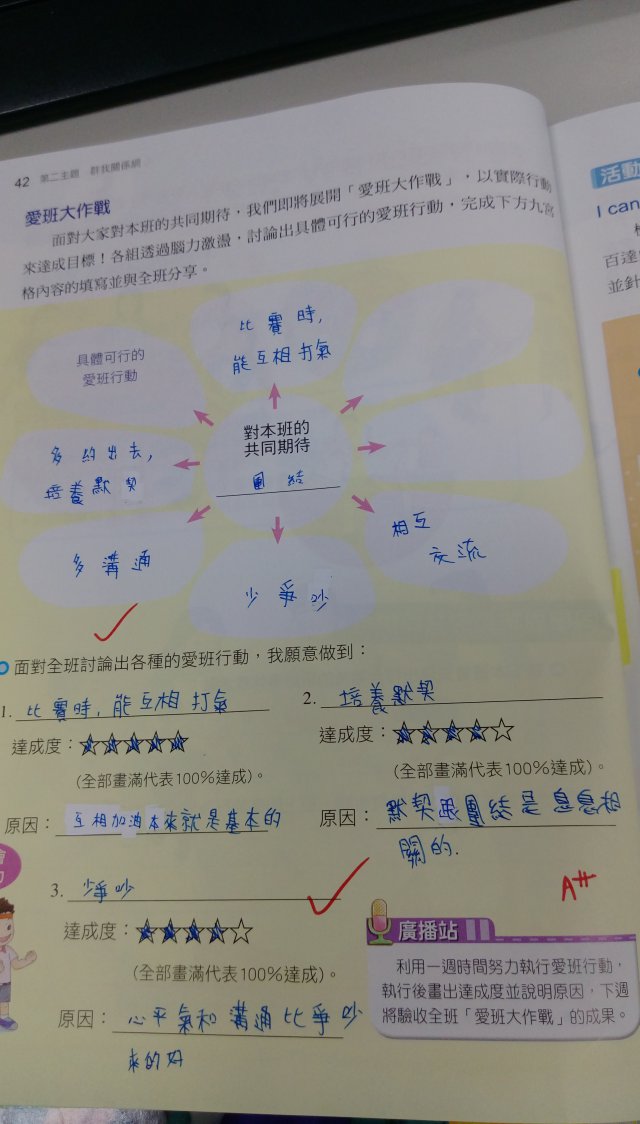 42 第二主題 群我關係網
愛班大作戰
面對大家對本班的共同期待，我們即將展開「愛班大作戰」，以實際行動
來達成目標！各組透過腦力激盪，討論出具體可行的愛班行動，完成下方九宮
格內容的填寫並與全班分享。
具體可行的
愛班行動
比賽時,
能互相打氣
多約出去,
培養默契
對本班的
共同期待
團結
多溝通
少爭吵
相互
交流
面對全班討論出各種的愛班行動，我願意做到：
1. 比賽時,能互相打氣
達成度：★★★★★
(全部畫滿代表100%達成)。
原因：互相加油本來就是基本的
2. 培養默契
達成度：★★★★☆
(全部畫滿代表100%達成)。
原因：默契跟團結是息息相
關的.
3. 少爭吵
達成度：★★★★☆
(全部畫滿代表100%達成)。
原因：心平氣和溝通比爭吵
來的好
A++
廣播站
利用一週時間努力執行愛班行動，
執行後畫出達成度並說明原因，下週
將驗收全班「愛班大作戰」的成果。
活動
I can
百達
並針